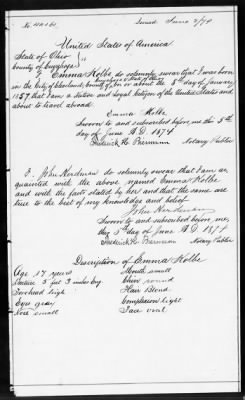 No 40161 Issued June 9/74
United States of America
State of Ohio
County of Cuyahoga } ss
I Emma Kolbe do solemnly swear that I was born
in the City of Cleveland, County of Cuyahoga & State of Ohio on or about the 5th day of January
1857 that I am a Native and Loyal Citizen of the United States and
about to travel abroad
Emma Kolbe
Sworn to and subscribed before me this 5th
day of June A.D. 1874
Frederick H. Biermann Notary Public
I. John Herdman do solemnly swear that I am ac-
quainted with the above named Emma Kolbe
and with the fact stated by her and that the same are
true to the best of my knowledge and belief
John Herdman
Sworn to and subscribed before me,
this 5th day of June A.D. 1874
Frederick H. Biermann Notary Public
Description of Emma Kolbe
Age 17 years Mouth small
Stature 5 feet 3 inches Eng. Chin round
Forehead high Hair Blond
Eyes gray Complexion light
Nose small Face oval